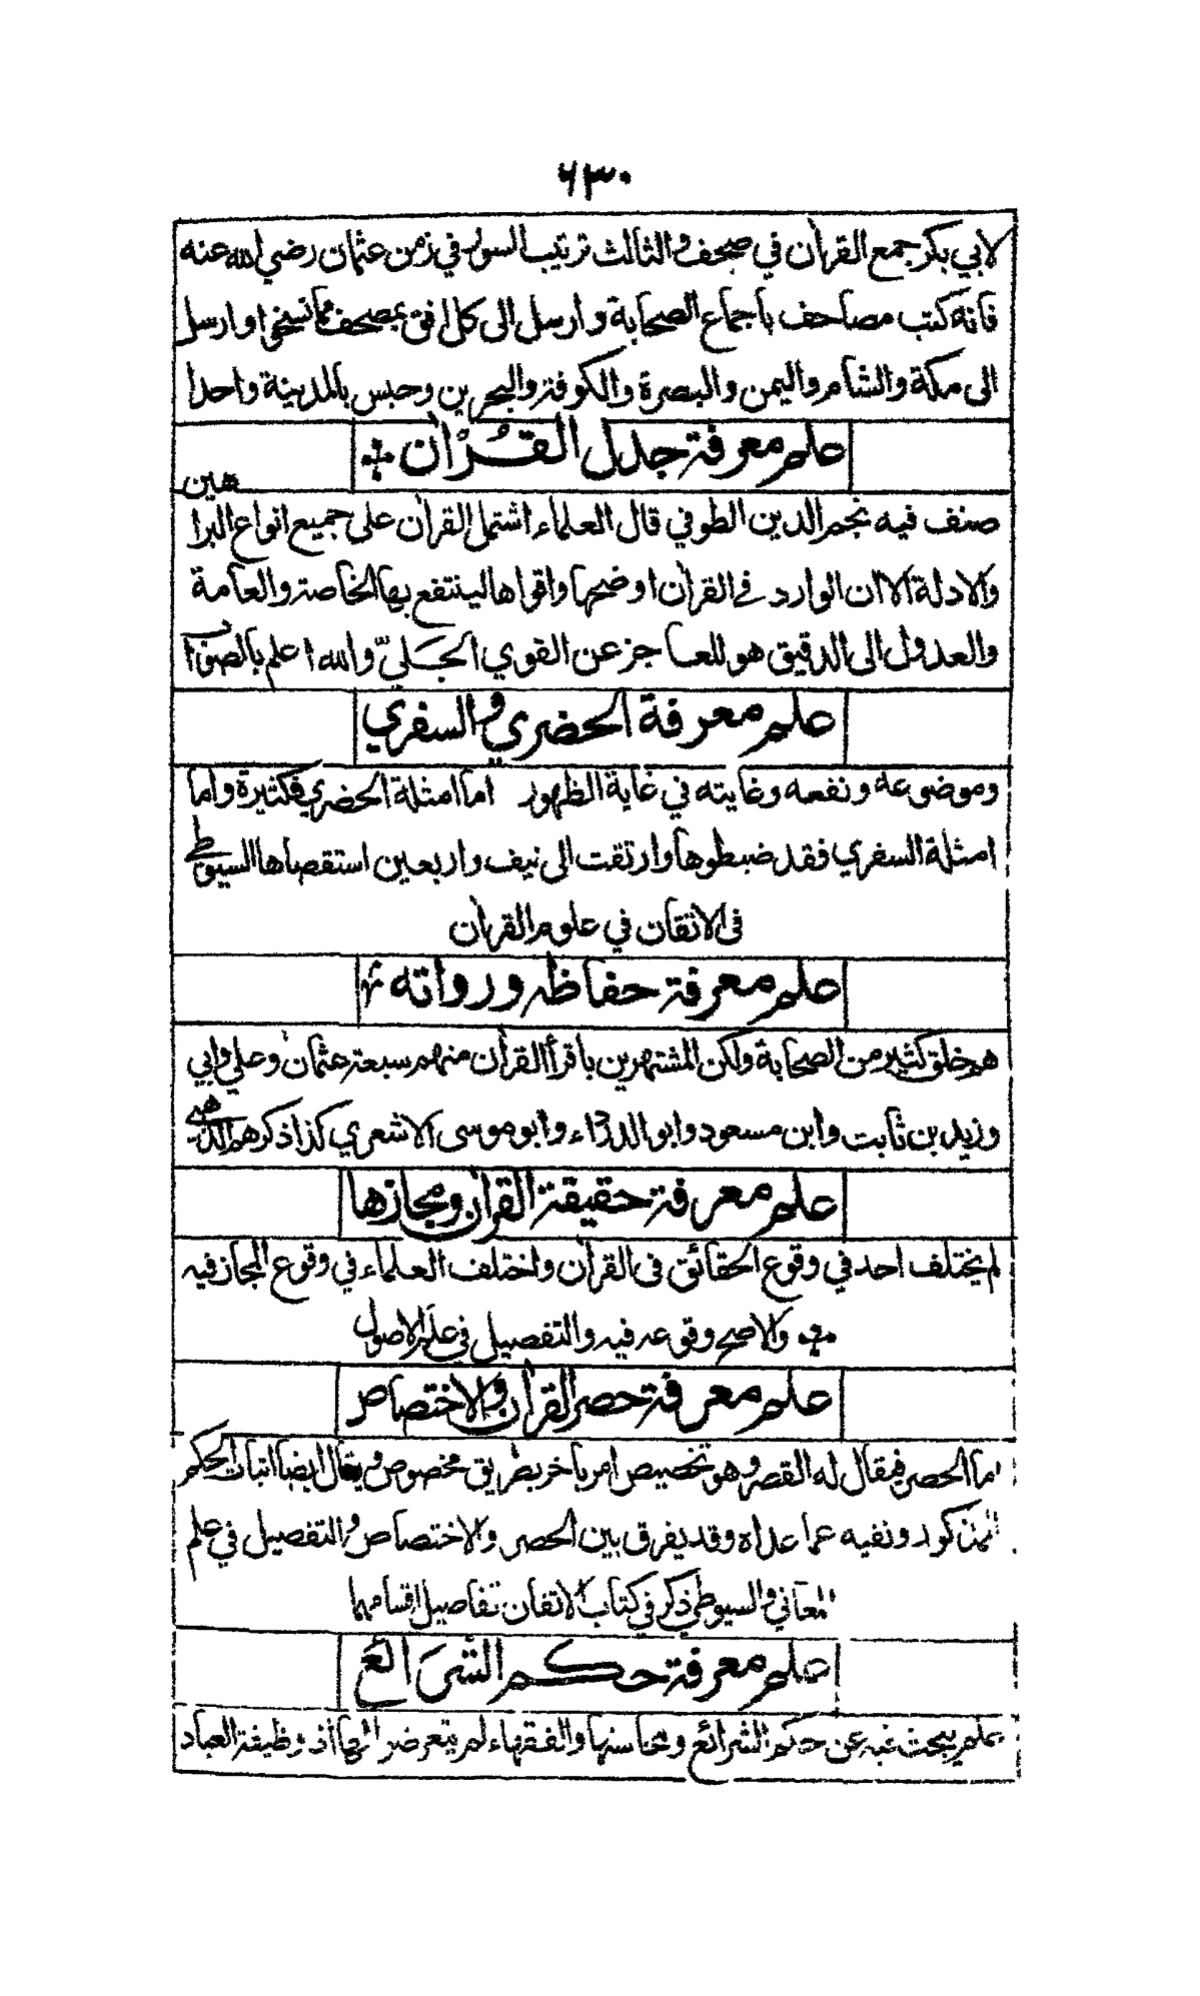 ٦٣٠
لابي بكر جمع القرآن في صحف والثالث ترتيب السور في زمن عثمان رضي الله عنه
فانه كتب مصاحف باجماع الصحابة وارسل الى كل افق بمصحف مما نسخوا وارسل
الى مكة والشام واليمن والبصرة والكوفة والبحرين وحبس بالمدينة واحدا
علم معرفة جدل القُرْآن
صنف فيه نجم الدين الطوفي قال العلماء اشتمل القرآن على جميع انواع البراهين
والادلة الا ان الوارد في القرآن اوضحها واقواها لينتفع بها الخاصة والعامة
والعدول الى الدقيق هو للعاجز عن القوي الجَليّ والله اعلم بالصواب
علم معرفة الحضري والسفري
وموضوعه ونفعه وغايته في غاية الظهور اما امثلة الحضري فكثيرة واما
امثلة السفري فقد ضبطوها وارتقت الى نيف واربعين استقصاها السيوطي
في الاتقان في علوم القرآن
علم معرفة حفاظه ورواته
هم خلق كثير من الصحابة ولكن المشتهرين باقرأ القرآن منهم سبعة عثمان وعلي وابي
وزيد بن ثابت وابن مسعود وابو الدرداء وابو موسى الاشعري كذا ذكرهم الذهبي
علم معرفة حقيقة القرآن ومجازها
لم يختلف احد في وقوع الحقائق في القرآن واختلف العلماء في وقوع المجاز فيه
والاصح وقوعه فيه والتفصيل في علم الاصول
علم معرفة حصر القرآن والاختصاص
اما الحصر فيقال له القصر وهو تخصيص امر باخر بطريق مخصوص ويقال ايضا اثبات الحكم
للمذكور ونفيه عما عداه وقد يفرق بين الحصر والاختصاص والتفصيل في علم
المعاني والسيوطي ذكر في كتاب الاتقان تفاصيل اقسامهما
علم معرفة حكم الشَرائع
علم يبحث فيه عن حكم الشرائع ومحاسنها والفقهاء لم يتعرضوا لها اذ وظيفة العباد